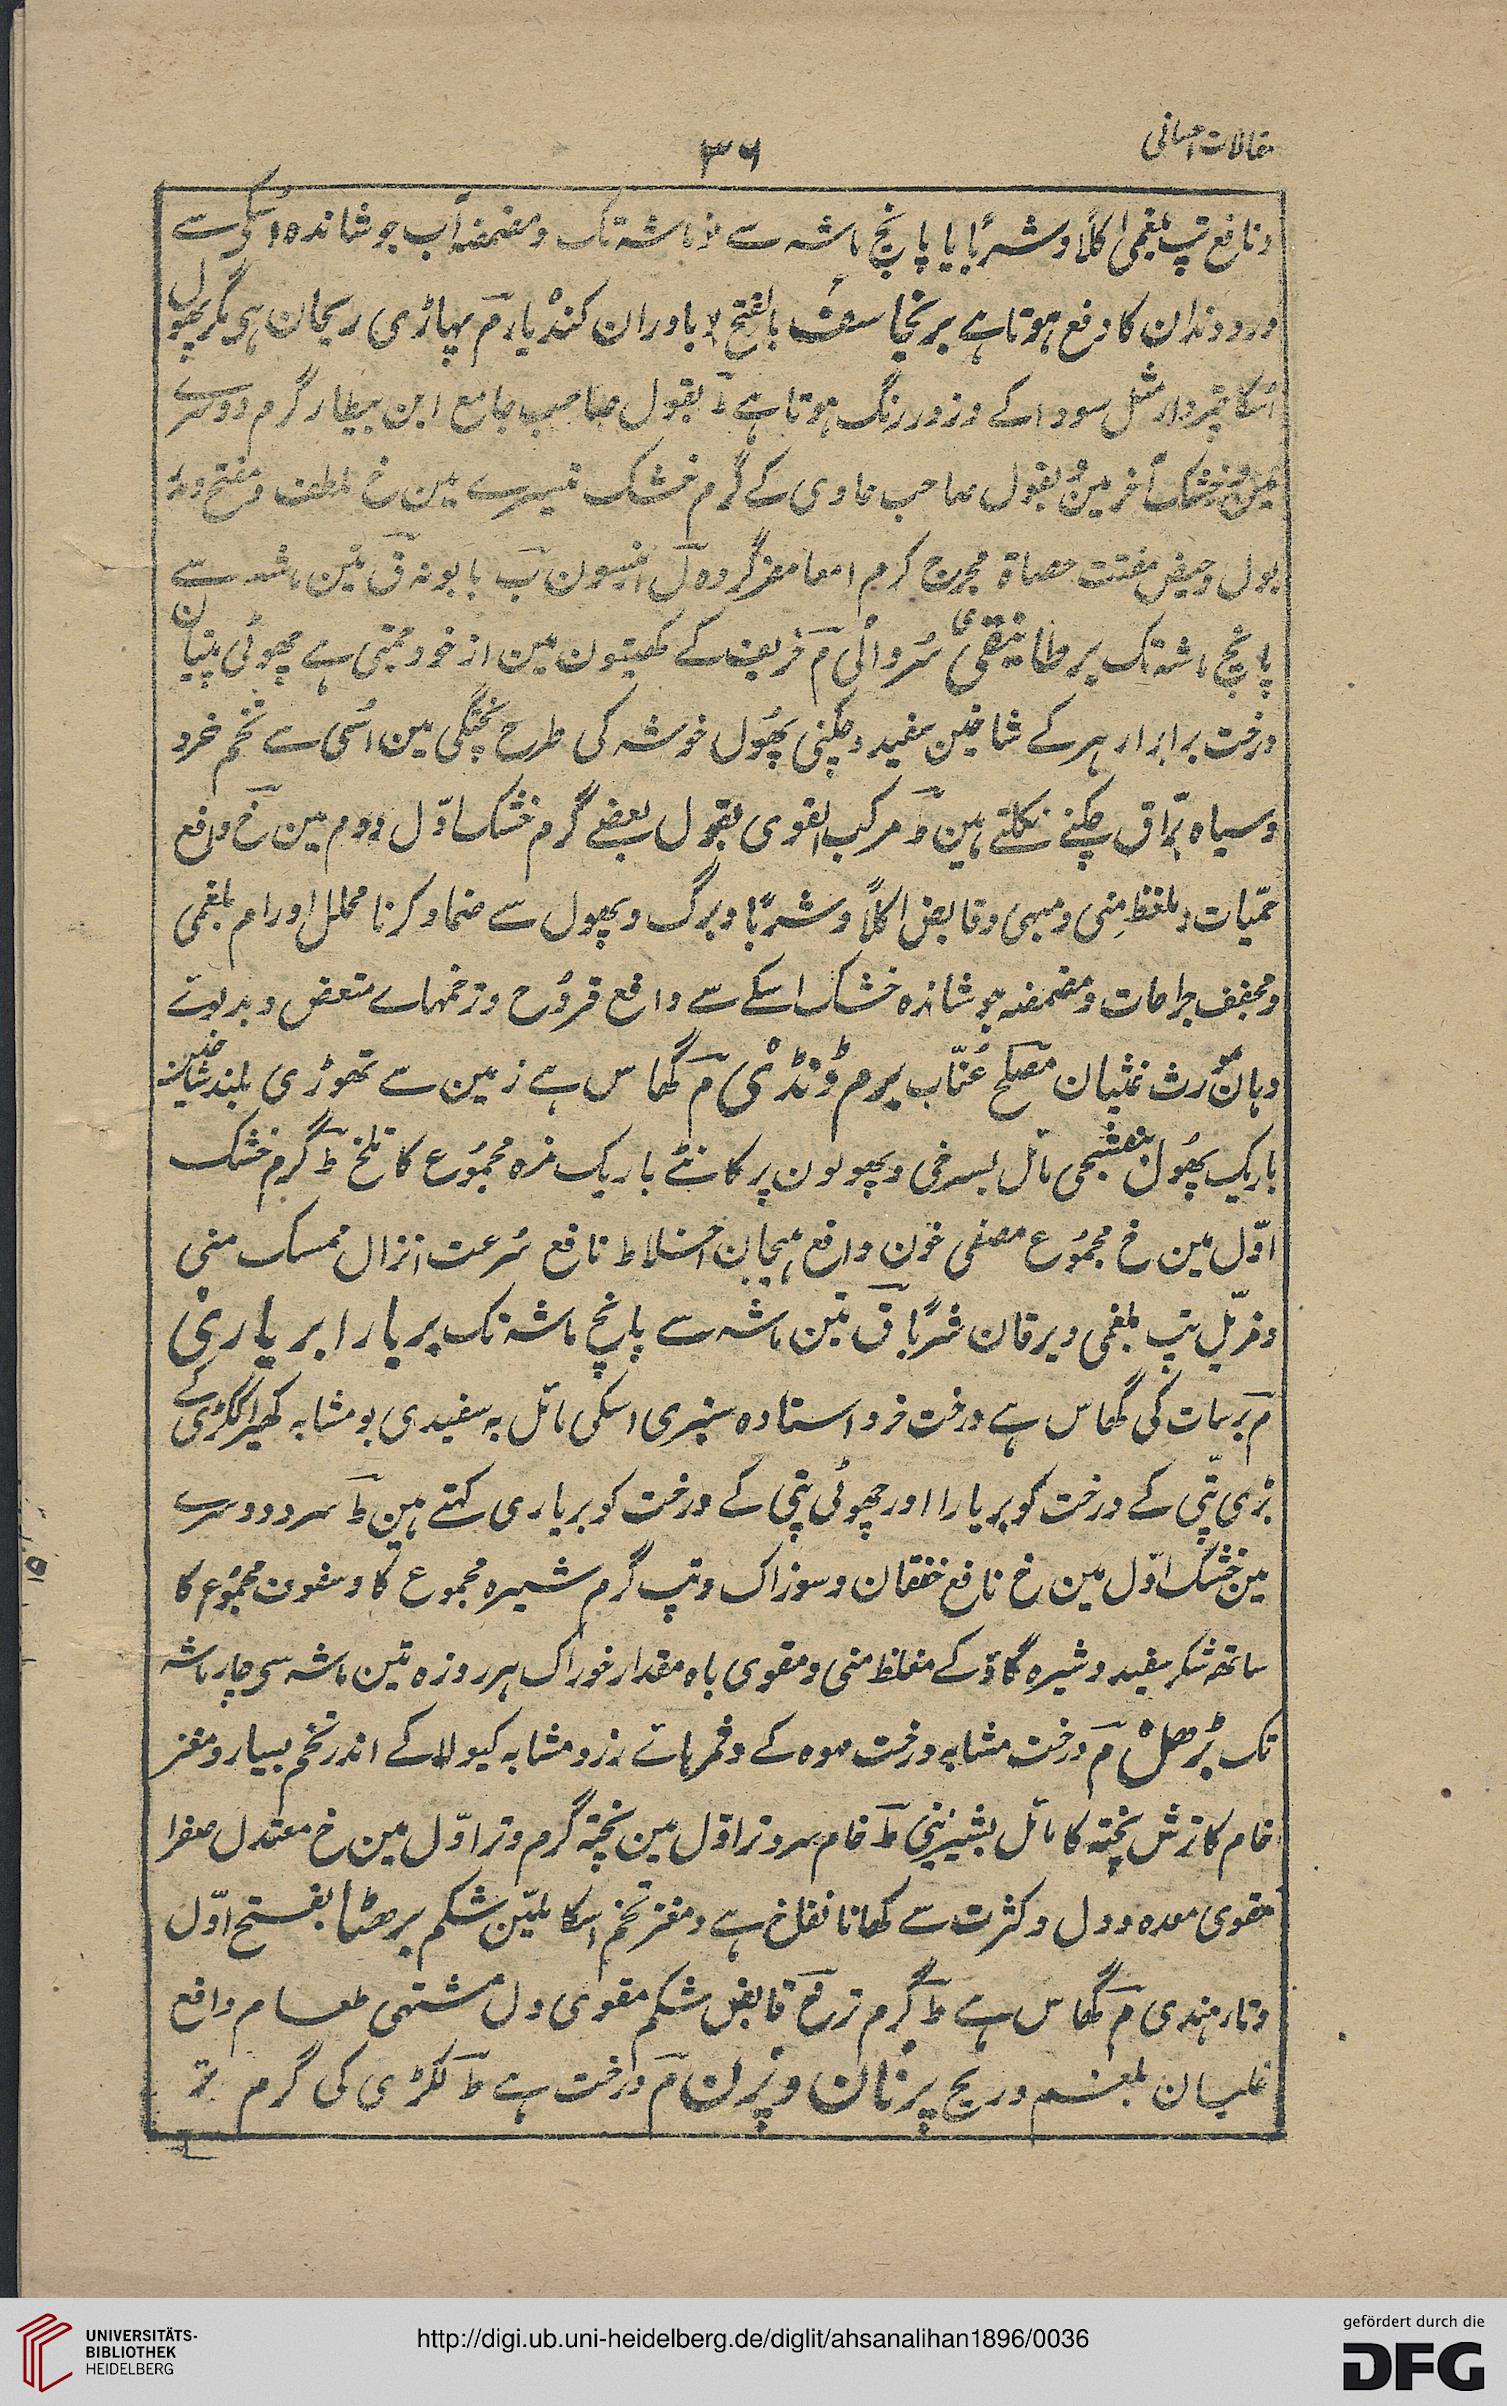 مقالات احسانی
۳۶
و نافع تپ بلغمی اکلاً و شرباً یا پانچ ماشہ سے نو ماشہ تک و مضمضہ آب جوشاندہ اسکی سے
درد دندان کا دفع ہوتا ہے برنجاسف بالفتح لا باوران کنڈیارم پہاڑی ریحان ہی مگر پھول
اسکا چتردار مثل سودا کے و زرد رنگ ہوتا ہے ط بقول صاحب جامع ابن بیطار گرم دوسرے
مین و خشک آخر مین و بقول صاحب حاوی کے گرم خشک تیسرے مین خ ملطف و مفتح و مدر
بول و حیض مفتت حصاۃ مخرج کرم امعا مضر گردہ ل انیسون ب بابونہ ق تین ماشہ سے
پانچ ماشہ تک برطانیقی سروالی م خریف کے کھیتون مین از خود جمتی ہے چھوٹی پتیان
درخت برابر ارہر کے شاخین سفید و چکنی پھول خوشہ کی طرح پختگی مین اسی سے تخم خرد
و سیاہ براق چکنے نکلتے ہین ط مرکب القوی بقول بعضے گرم خشک اول دوم مین خ دافع
حمیات و مغلظ منی و مبہی و قابض اکلاً و شرباً و برگ و پھول سے ضماد کرنا محلل اورام بلغمی
و مجفف جراحات و مضمضہ جوشاندہ خشک اسکے سے دافع قروح و زخمہاے متعفن و بدبوے
دہان مورث غثیان مصلح عناب برم ڈونڈی م گھاس ہے زمین سے تھوڑی بلند شاخین
باریک پھول بنفشجی مائل بسرخی و پھولون پر کانٹے باریک مزہ مجموع کا تلخ ط گرم خشک
اول مین خ مجموع مصفی خون دافع ہیجان اخلاط نافع سرعت انزال ممسک منی
و مزیل تپ بلغمی و یرقان شرباً ق تین ماشہ سے پانچ ماشہ تک بریارا بریاری
م برسات کی گھاس ہے درخت خرد استادہ سبزی اسکی مائل بہ سفیدی بو مشابہ کھیرا ککڑی کے
بڑی پتی کے درخت کو بریارا اور چھوٹی پتی کے درخت کو بریاری کہتے ہین ط سرد دوسرے
مین خشک اول مین خ نافع خفقان و سوزاک و تپ گرم شیرہ مجموع کا و سفوف مجموع کا
ساتھ شکر سفید و شیرہ گاو کے مغلظ منی و مقوی باہ مقدار خوراک ہر روزہ تین ماشہ سی چار ماشہ
تک بڑھل م درخت مشابہ درخت موہ کے و ثمر مائے زرد مشابہ کیولا کے اندر تخم بسیار و مغز
خام کا ترش پختہ کا مائل بشیرینی ط خام سرد تر اول مین پختہ گرم و تر اول مین خ معتدل صفرا
مقوی معدہ و دل و کثرت سے کھانا نفاخ ہے و مغز تخم اسکا ملین شکم برھٹا بفتح اول
و تاء ہندی م گھاس ہے ط گرم تر خ قابض شکم مقوی دل مشتہی طعام دافع
غلیان بلغم و ریح پرنان و پرن م درخت ہے ط لکڑی کی گرم تر
UNIVERSITÄTS-
BIBLIOTHEK
HEIDELBERG
http://digi.ub.uni-heidelberg.de/diglit/ahsanalihan1896/0036
gefördert durch die
DFG